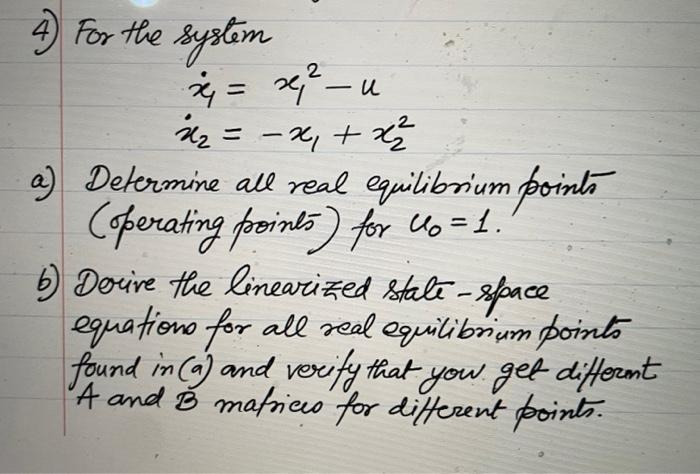 4) For the system
ẋ₁ = x₁² - u
ẋ₂ = -x₁ + x₂²
a) Determine all real equilibrium points
(operating points) for u₀ = 1.
b) Derive the linearized state-space
equations for all real equilibrium points
found in (a) and verify that you get different
A and B matrices for different points.